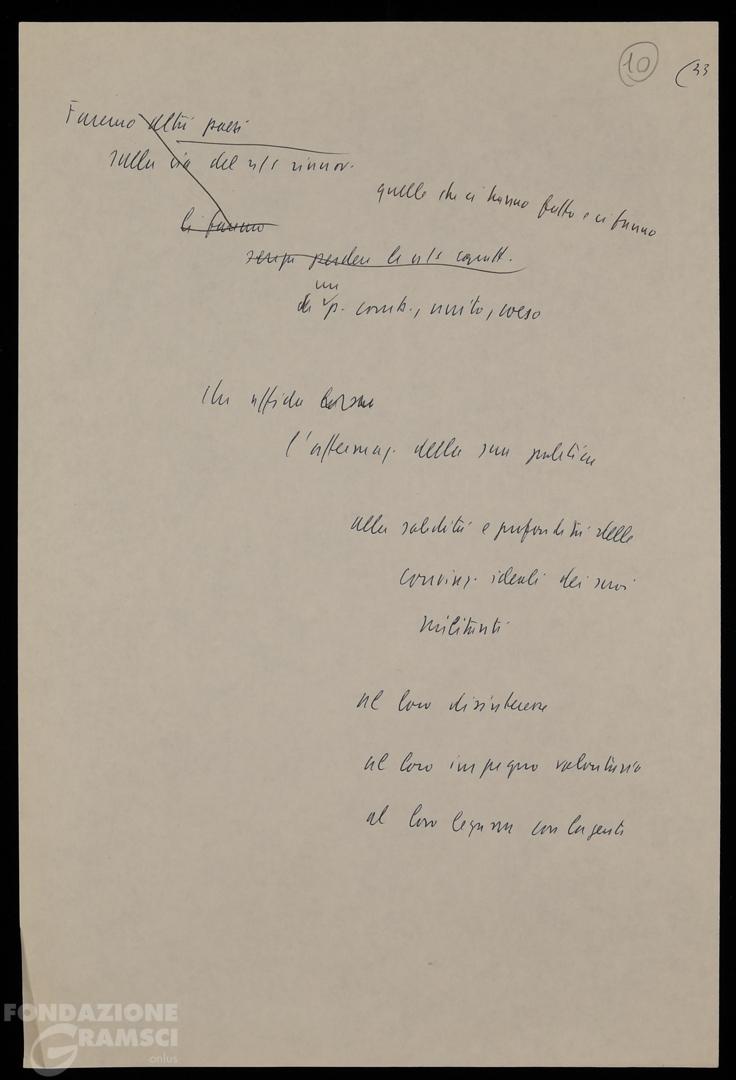 10
(33
Faremo altri passi
sulla via del n/s rinnov.
quelle che ci hanno fatto e ci fanno
li faremo
senza perdere le n/s caratt.
un
di p. comb., unito, coeso
che affida
l'affermaz. della sua politica
alla solidità e profondità delle
convinz. ideali dei suoi
militanti
al loro disinteresse
al loro impegno volontario
al loro legame con la gente
FONDAZIONE
GRAMSCI
onlus